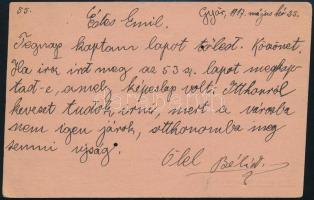 55. Győr, 1917. május hó 25.
Édes Emil.
Tegnap kaptam lapot tőled. Köszönet.
Ha írsz írd meg az 53 sz. lapot megkap-
tad-e, amely képeslap volt. Itthonról
keveset tudok írni, mert a városba
nem igen járok, otthonomba meg
semmi ujság.
Ölel